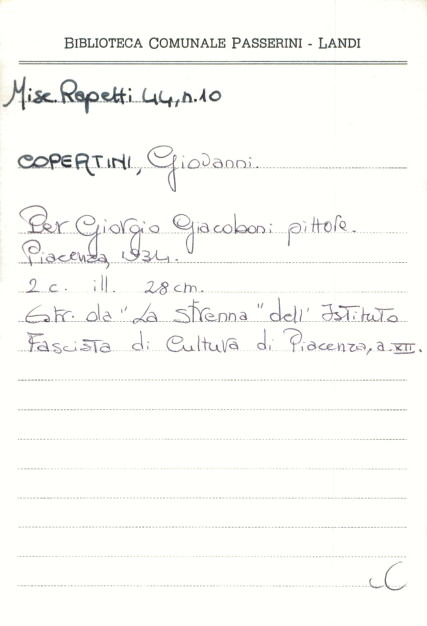 BIBLIOTECA COMUNALE PASSERINI - LANDI
Misc. Rapetti 44, n. 10
COPERTINI, Giovanni.
Per Giorgio Giacoboni pittore.
Piacenza, 1934.
2 c. ill. 28 cm.
Estr. da "La Strenna" dell' Istituto
Fascista di Cultura di Piacenza, a. XII.